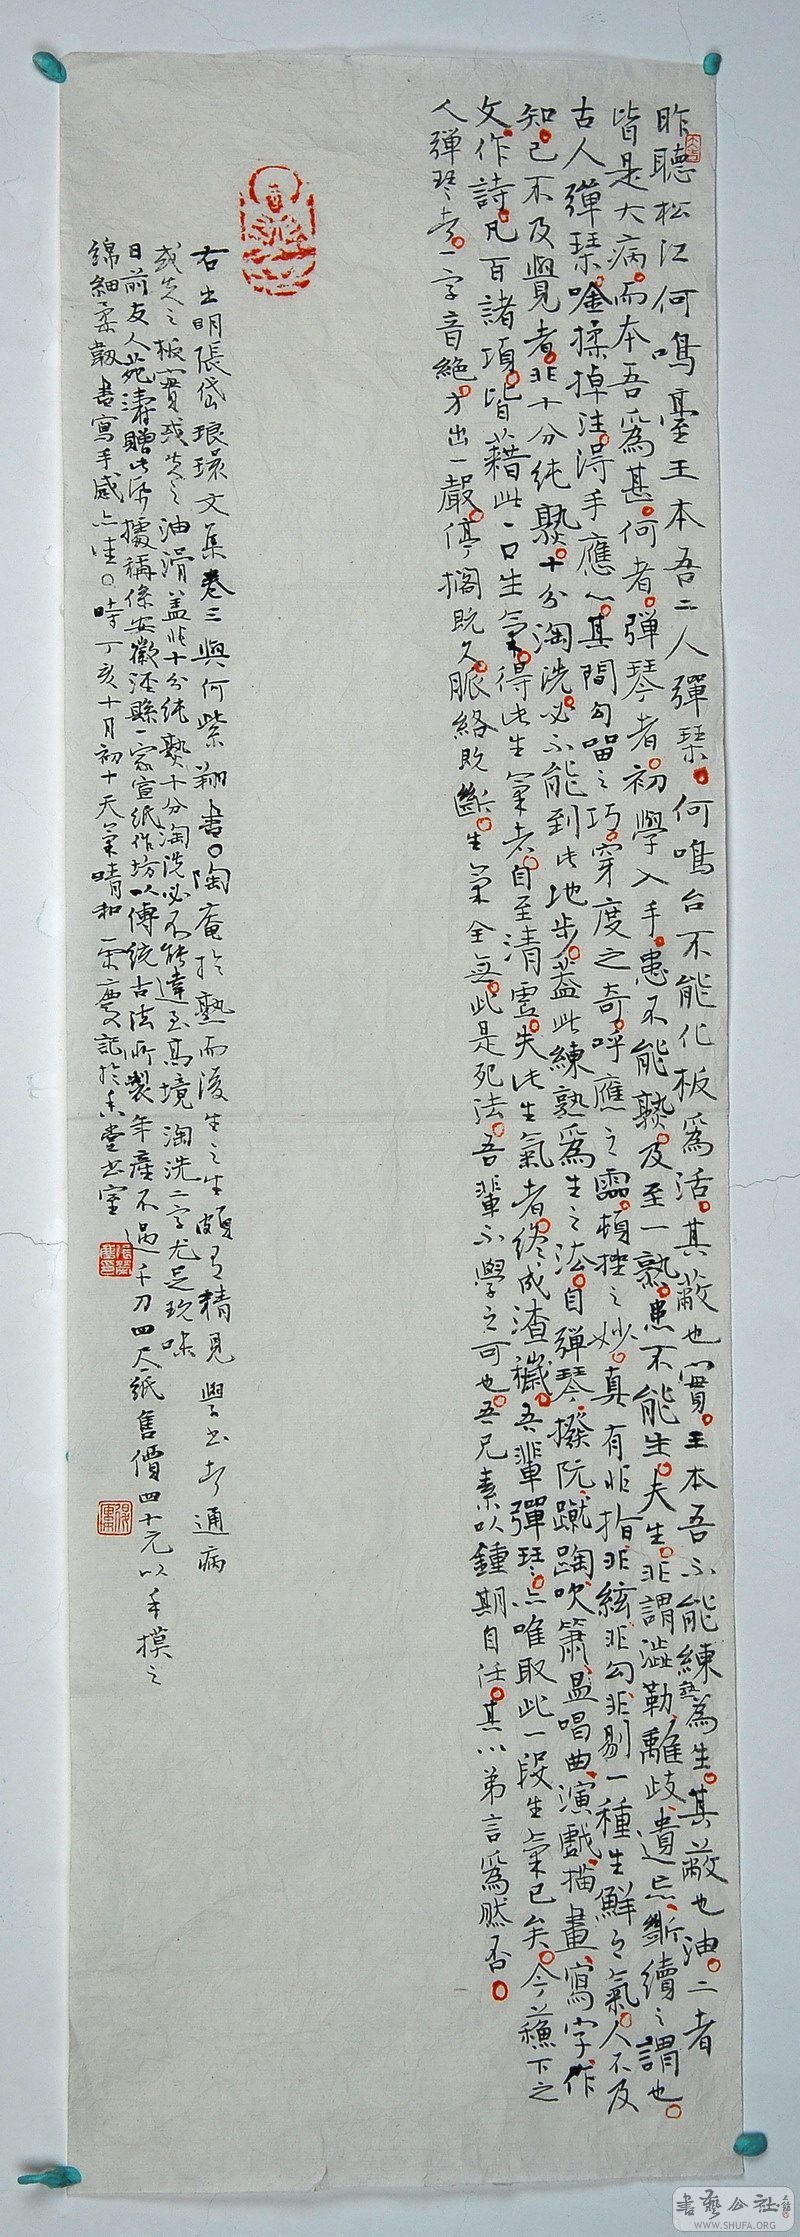 昨聽松江何鳴臺王本吾二人彈琴。何鳴台不能化板爲活。其蔽也實。王本吾不能練熟爲生。其蔽也油。二者
皆是大病。而本吾爲甚。何者。弹琴者。初學入手。患不能熟。及至一熟。患不能生。夫生。非謂澁勒、離歧、遺忘、斷續之謂也。
古人彈琴。唫揉掉注。得手應心。其間勾留之巧。穿度之奇。呼應之靈。頓挫之妙。真有非指、非絃、非勾、非剔一種生鮮之氣。人不及
知。己不及覺者。非十分純熟。十分淘洗。必不能到此地步。蓋此練熟爲生之法。自弹琴、撥阮、蹴踘、吹簫、昷唱曲、演戲、描畫、寫字、作
文、作詩。凡百諸項。皆藉此一口生氣。得此生氣者。自至清虛。失此生氣者。終成渣穢。吾輩彈琴。亦唯取此一段生氣已矣。今蘓下之
人彈琴者。一字音絶。方出一聲。停擱既久。脈絡既斷。生氣全無。此是死法。吾輩不學之可也。吾兄素以鍾期自任。其以弟言爲然否。
右出明張岱琅環文集卷三與何紫翔書。陶庵於熟而後生之生頗有精見學書者通病
或失之板實或失之油滑盖非十分純熟十分淘洗必不能達至高境淘洗二字尤足玩味
日前友人苑濤贈此紙據稱係安徽涇縣一家宣紙作坊以傳統古法所製年産不過千刀四尺紙售價四十元以手摸之
綿細柔韌書寫手感亦佳。時丁亥十月初十天氣晴和
書藝公社
WWW.SHUFA.ORG